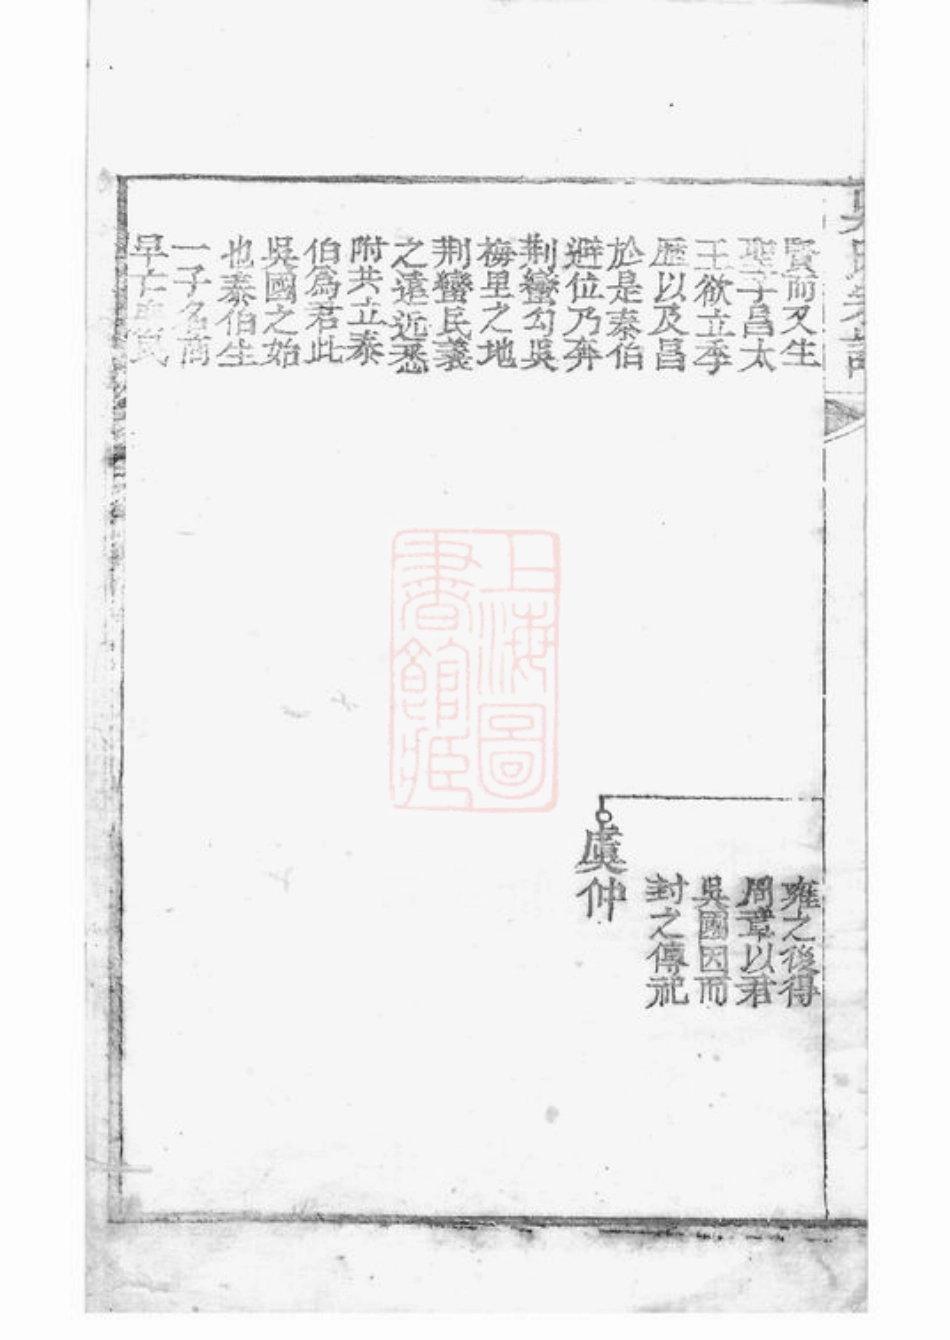 賢而又生
聖子昌太
王欲立季
歷以及昌
於是泰伯
避位乃奔
荆蠻勾吳
梅里之地
荆蠻民義
之遠近悉
附共立泰
伯為君此
吳國之始
也泰伯生
一子名商
早亡
雍之後得
周章以君
吳國因而
封之傳祀
虞仲
上海圖
書館藏